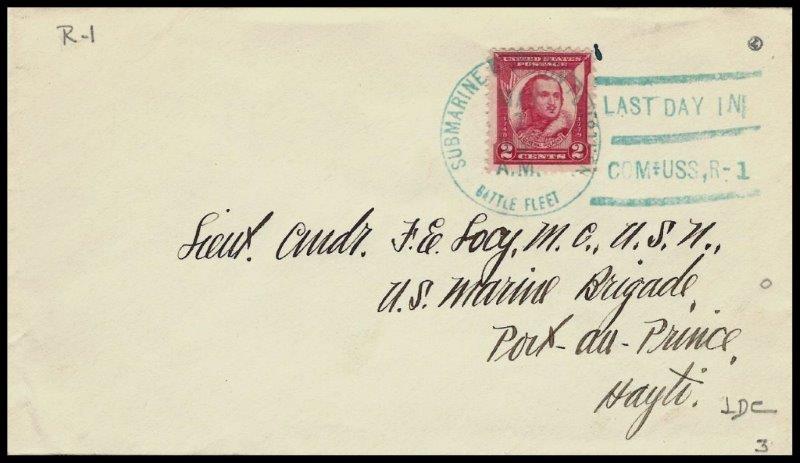 R-1
UNITED STATES
POSTAGE
2 2
CENTS
SUBMARINE
A.M.
BATTLE FLEET
LAST DAY IN
COM. USS, R-1
Lieut. Cmdr. F.E. Locy, M.C., U.S.N.,
U.S. Marine Brigade,
Port-au-Prince,
Hayti.
LDC
3